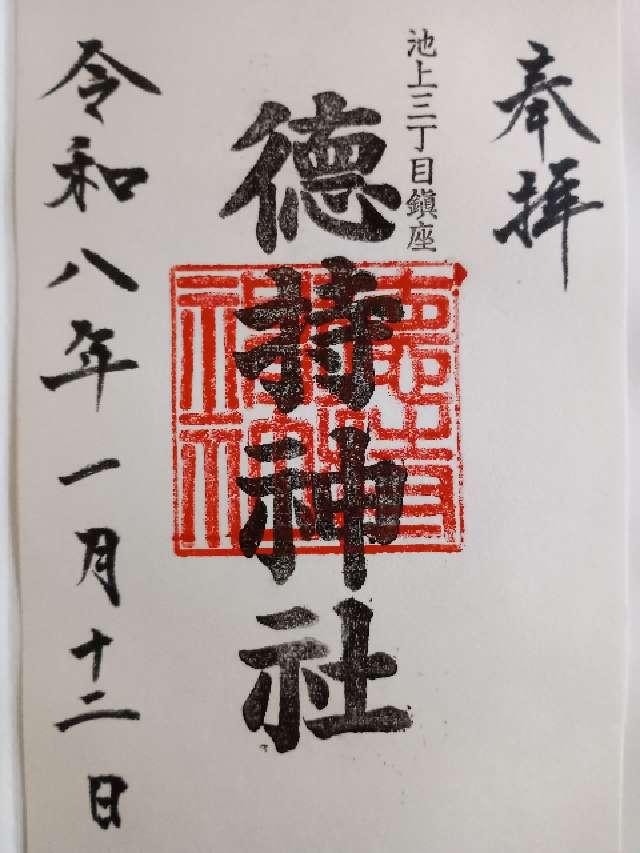 奉拝
池上三丁目鎮座
徳持神社
令和八年一月十二日